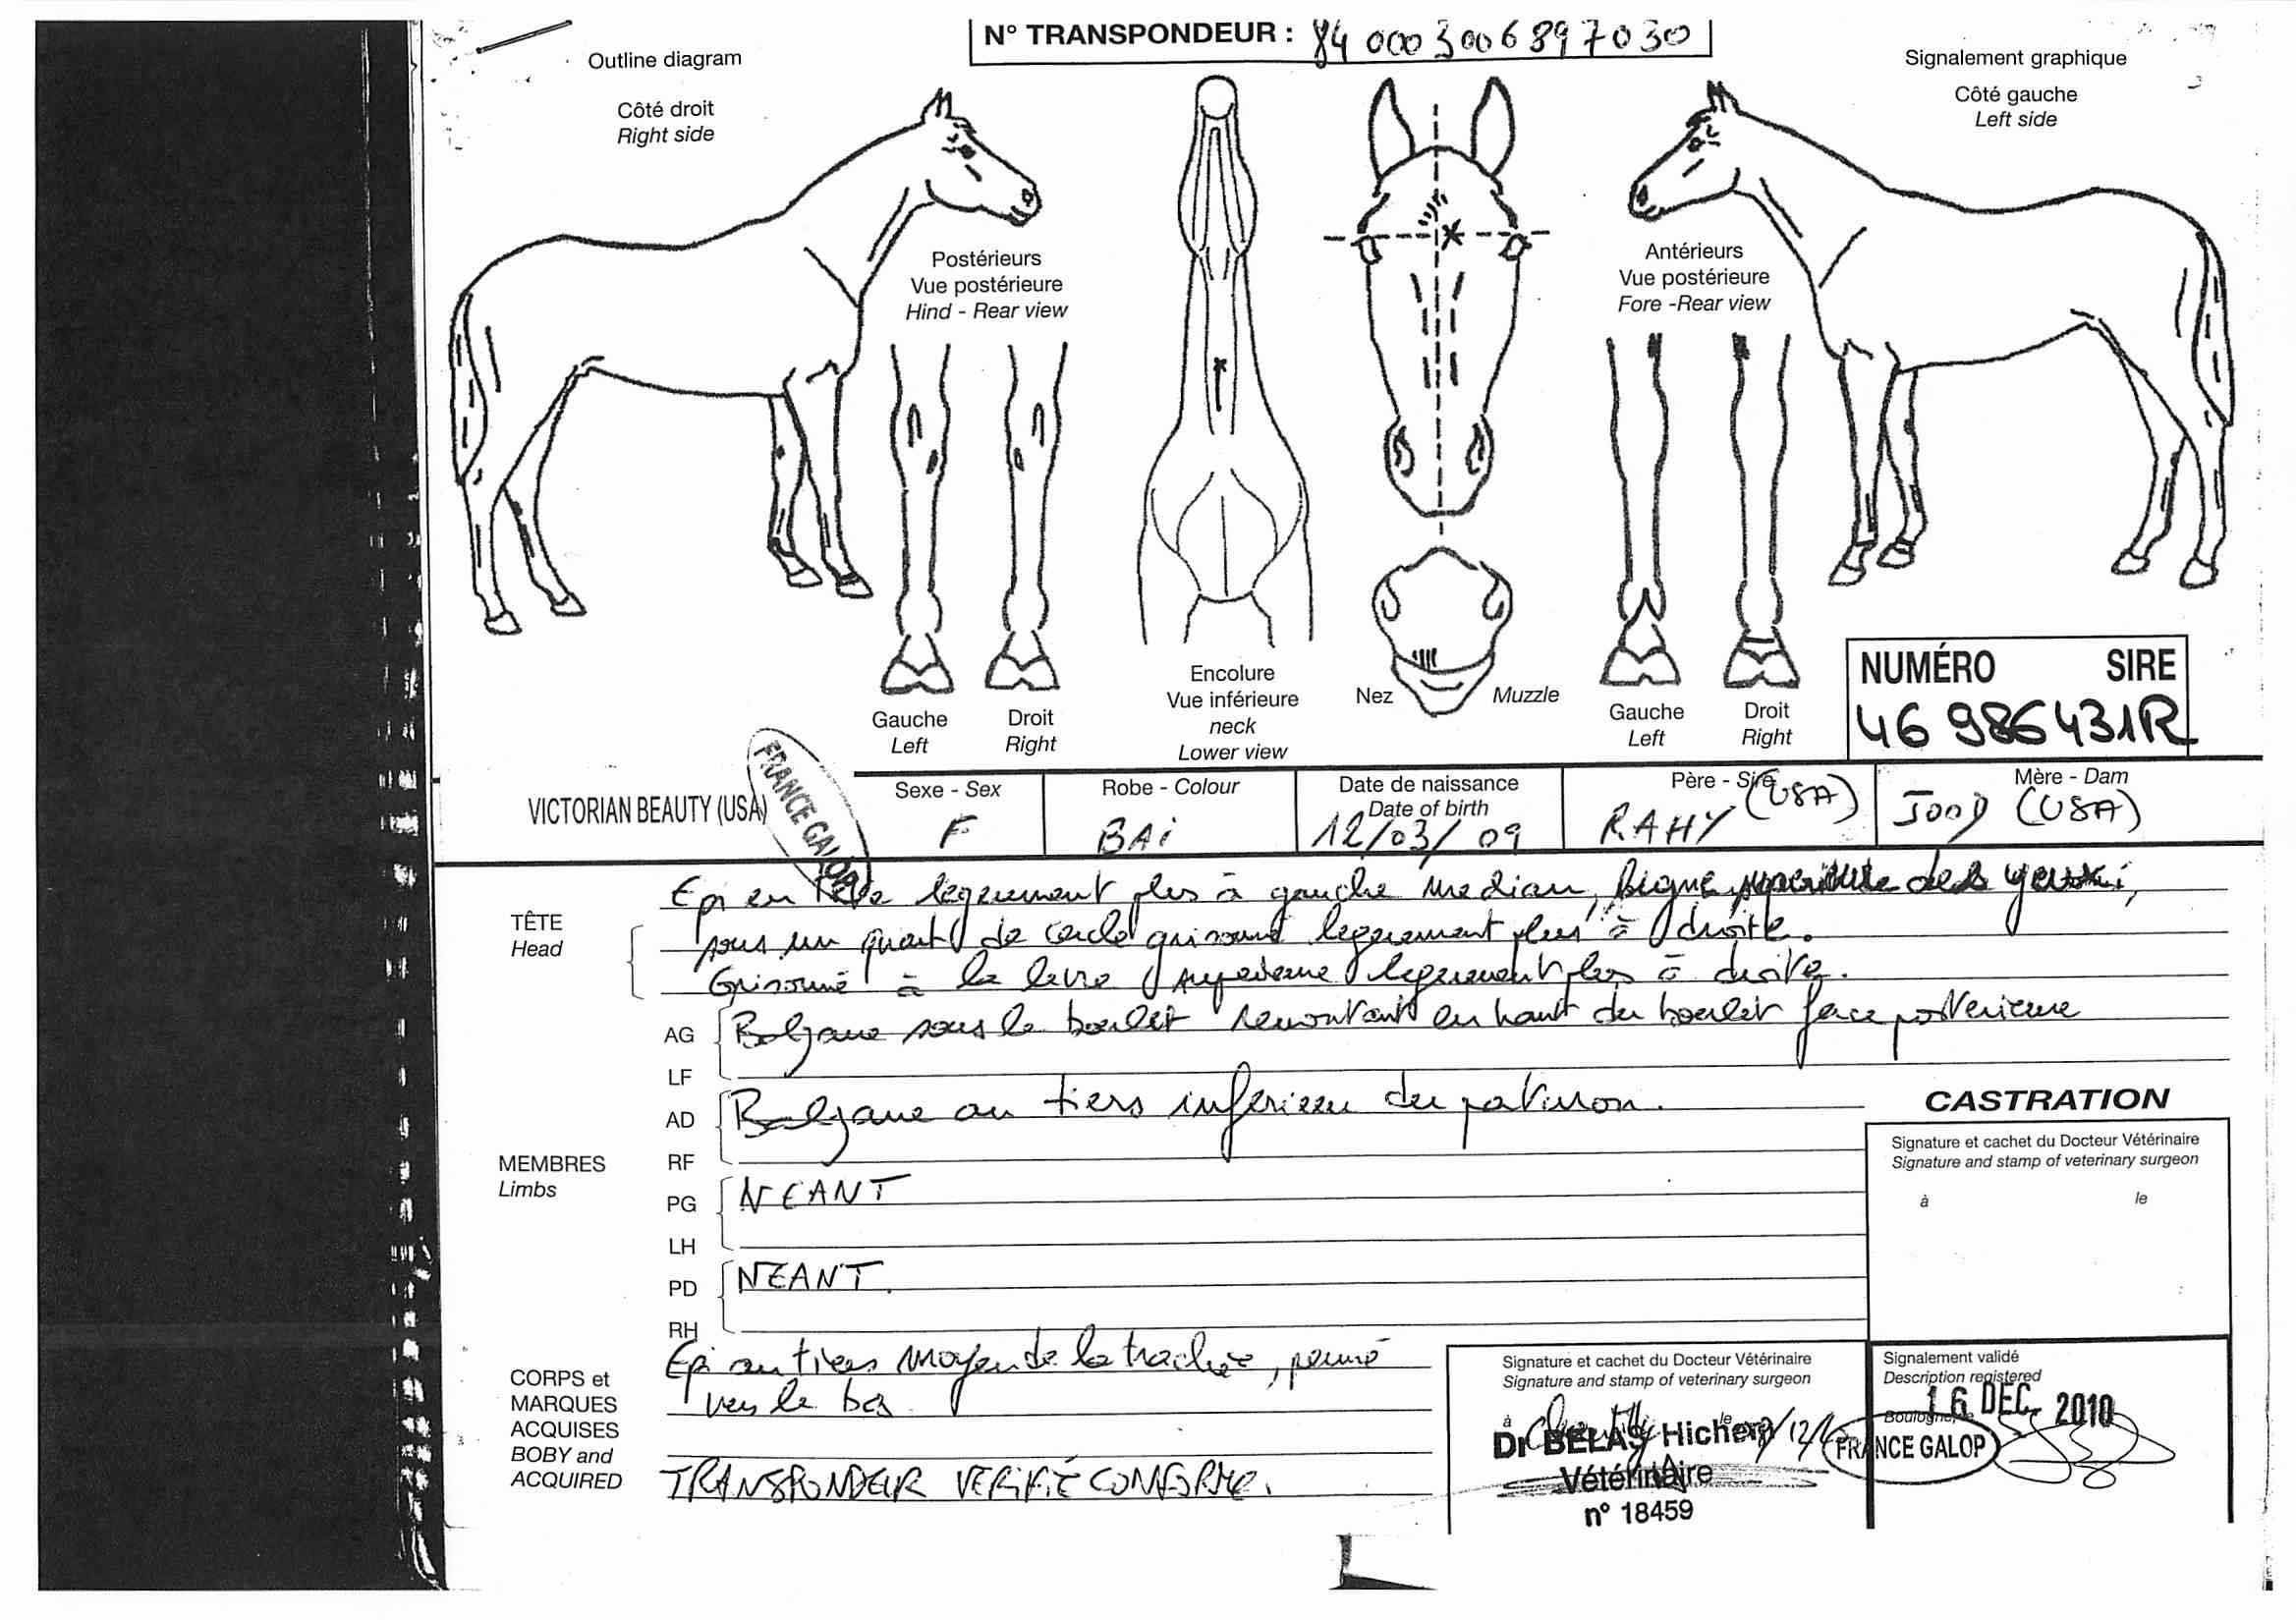 N° TRANSPONDEUR : 840003006897030
Outline diagram
Côté droit
Right side
Signalement graphique
Côté gauche
Left side
Postérieurs
Vue postérieure
Hind - Rear view
Antérieurs
Vue postérieure
Fore -Rear view
Gauche
Left
Droit
Right
Encolure
Vue inférieure
neck
Lower view
Nez
Muzzle
Gauche
Left
Droit
Right
NUMÉRO SIRE
46 986431R
VICTORIAN BEAUTY (USA)
FRANCE GALOP
Sexe - Sex
F
Robe - Colour
BAi
Date de naissance
Date of birth
12/03/09
Père - Sire
RAHY (USA)
Mère - Dam
JOOD (USA)
TÊTE
Head
Epi en tête légèrement plus à gauche median, ligne supérieure des yeux,
sous un quart de cercle grisonné légèrement plus à droite.
Grisonné à la lèvre supérieure légèrement plus à droite.
MEMBRES
Limbs
AG
LF
Balzane sous le boulet remontant en haut du boulet face postérieure
AD
RF
Balzane au tiers inférieur du paturon.
PG
LH
NEANT
PD
RH
NEANT.
CASTRATION
Signature et cachet du Docteur Vétérinaire
Signature and stamp of veterinary surgeon
à le
CORPS et
MARQUES
ACQUISES
BOBY and
ACQUIRED
Epi au tiers moyen de la trachée, penné
vers le bas
TRANSPONDEUR VERIFIÉ CONFORME.
Signature et cachet du Docteur Vétérinaire
Signature and stamp of veterinary surgeon
à Chantilly le
Dr BELAS Hichem
Vétérinaire
n° 18459
Signalement validé
Description registered
Boulogne, le
16 DEC. 2010
FRANCE GALOP